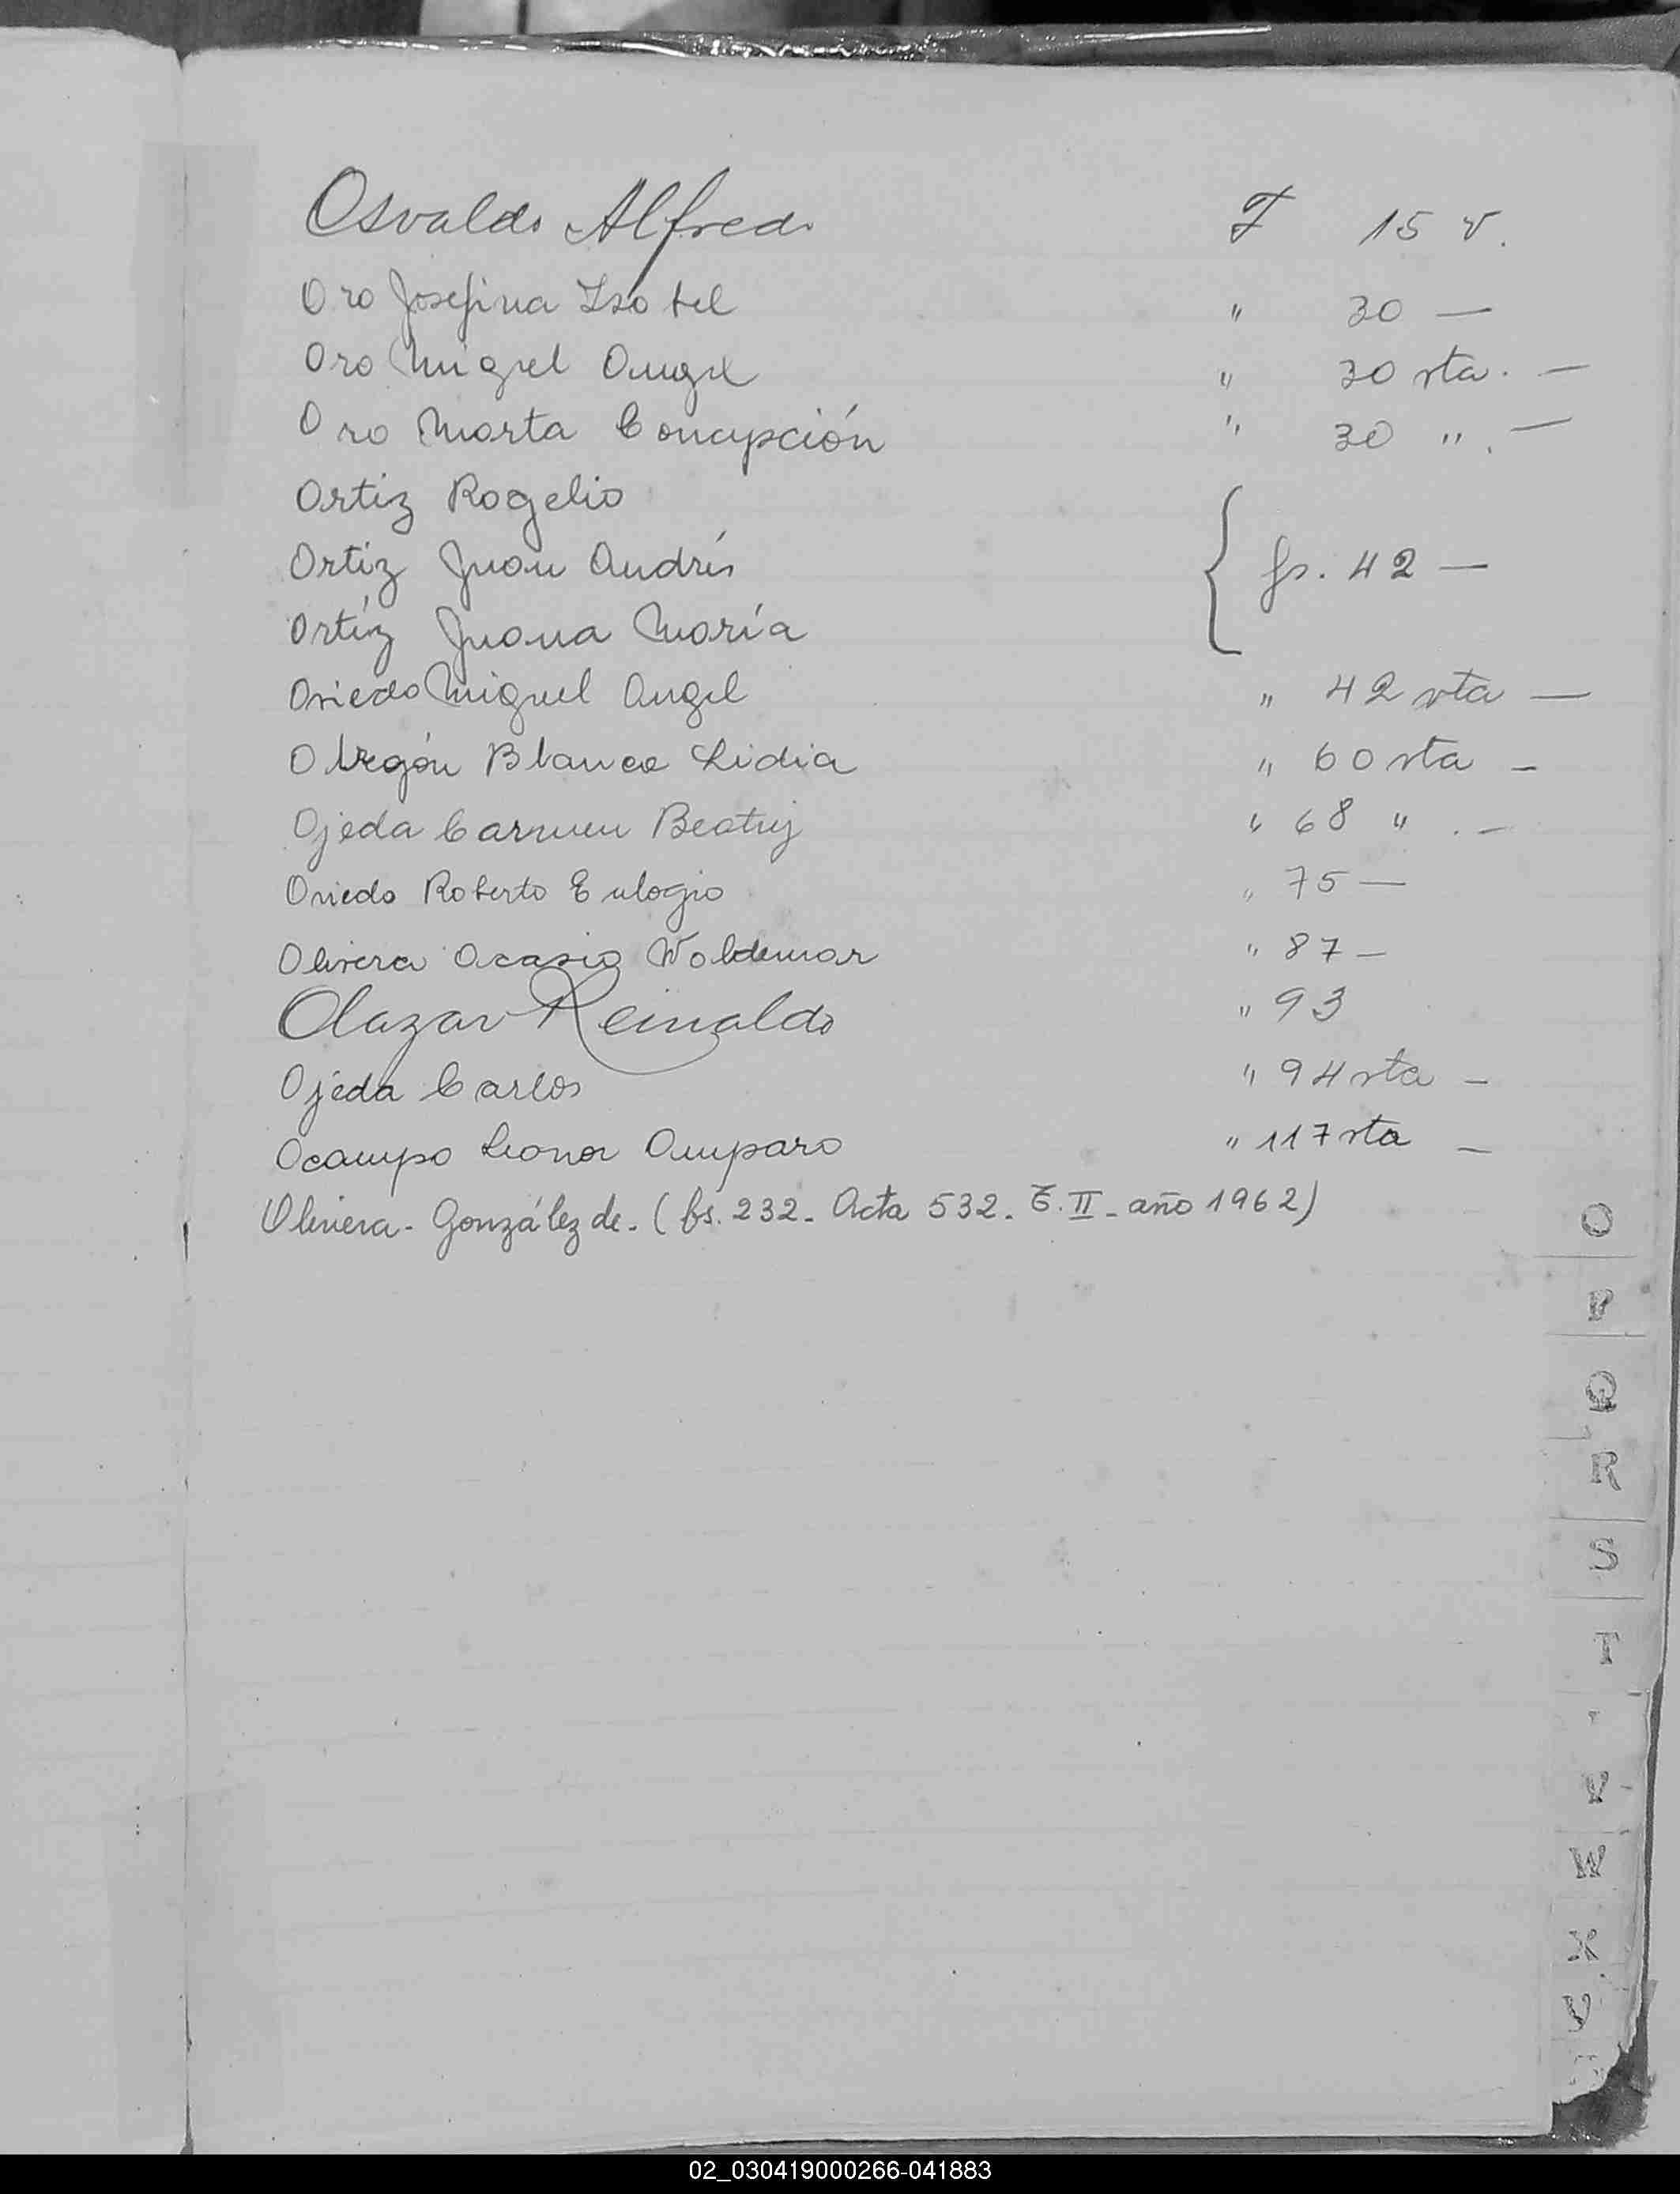 Osvaldo Alfredo F 15 v.
Oro Josefina Isabel " 30 —
Oro Miguel Angel " 30 vta. —
Oro Marta Concepción " 30 ". —
Ortiz Rogelio
Ortiz Juan Andrés { fs. 42 —
Ortíz Juana María
Oviedo Miguel Angel " 42 vta —
Obregón Blanca Lidia " 60 vta —
Ojeda Carmen Beatriz " 68 " . —
Oviedo Roberto Eulogio " 75 —
Olivera Ocasio Woldemar " 87 —
Olazar Reinaldo " 93
Ojeda Carlos " 94 vta —
Ocampo Leonor Amparo " 117 vta —
Oliviera - González de - (fs. 232 - Acta 532 - T. II - año 1962)
O
P
Q
R
S
T
V
W
X
Y
02_030419000266-041883